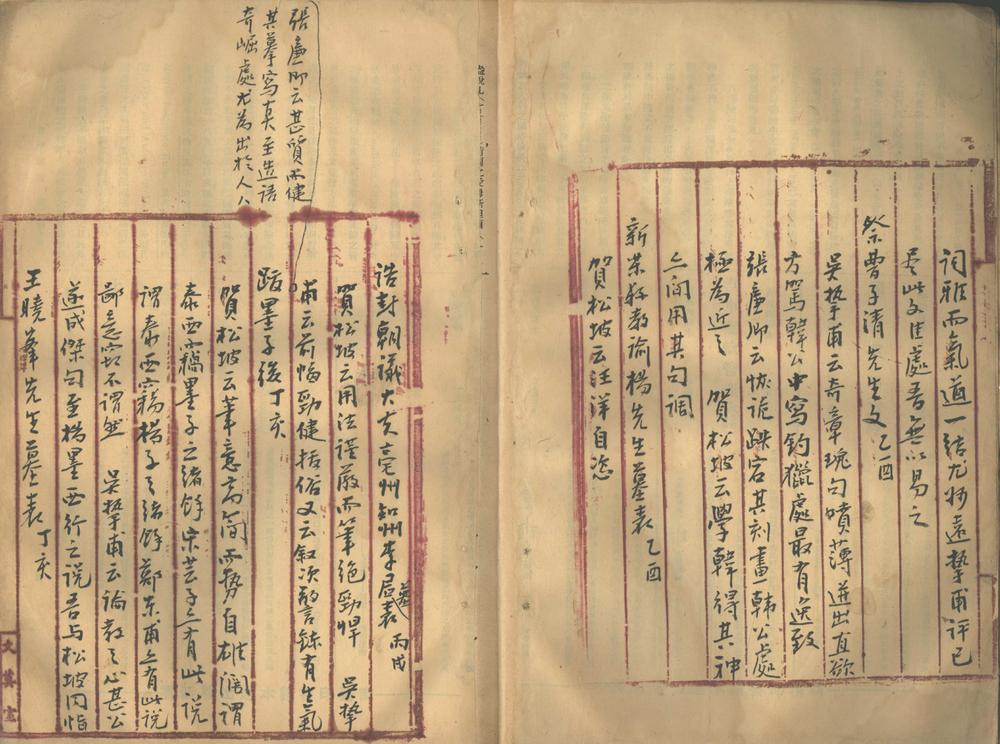 詞雅而氣遒一結尤妙遠摯甫評已
盡此文佳處吾無以易之
祭曹子清先生文乙酉
吳摯甫云奇章瑰句噴薄迸出直欲
方駕韓公中寫釣獵處最有逸致
張廉卿云恢詭跌宕其刻畫一韓公處
極為近之　賀松坡云學韓得其神
亦間用其句調
新業教諭楊先生墓表乙酉
賀松坡云汪洋自恣
誥封朝議大夫亳州知州李君墓表　丙戌
賀松坡云用法謹嚴而筆絕勁悍　吳摯
甫云前幅勁健括俗又云敘次警鍊有生氣
張廉卿云甚質而健
其摹寫真至造語
奇崛處尤為出於人人
跋墨子後丁亥
賀松坡云筆意高簡而勢自雄闊謂
泰西竊墨子之緒餘宋芸子亦有此說
謂泰西竊楊子之緒餘鄭東甫亦有此說
鄙意窃不謂然　吳摯甫云論教之心甚公
遂成傑句至楊墨西行之說吾與松坡同恉
王曉峯先生墓表丁亥
文萁堂